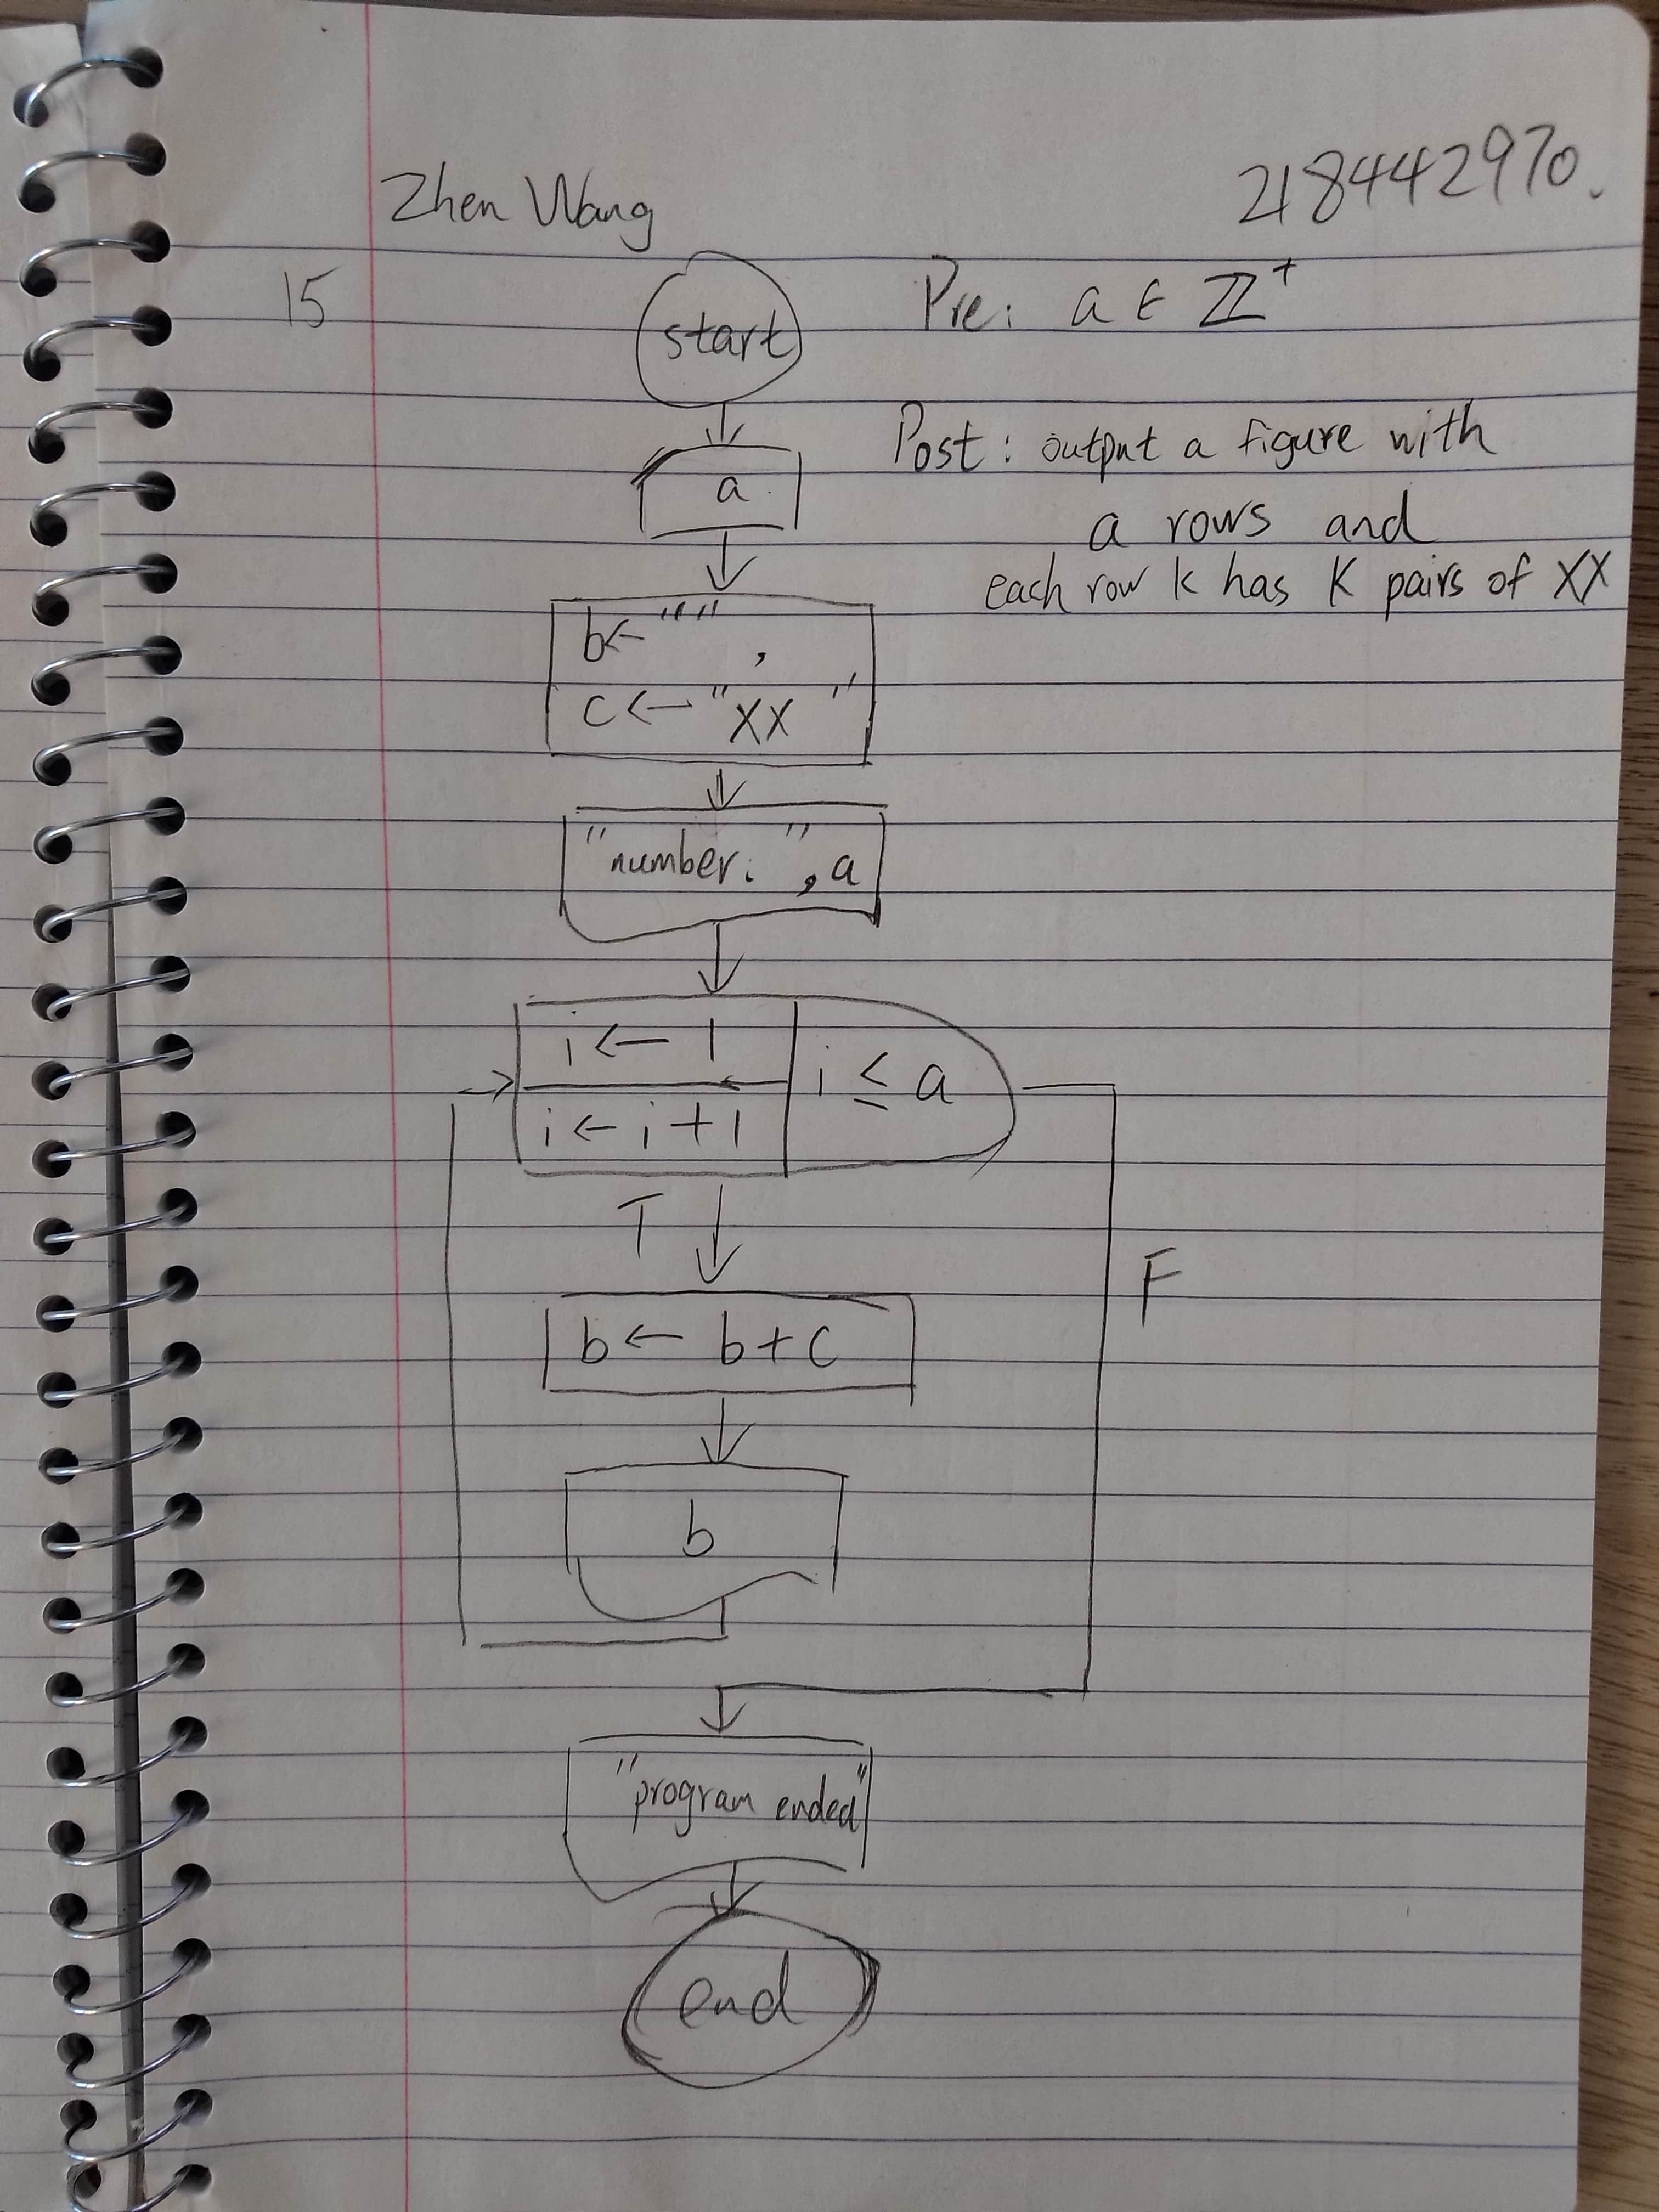 Zhen Wang
218442970.
15
start
Pre: a ∈ ℤ⁺
a
Post: output a figure with
a rows and
each row k has K pairs of XX
b← "" ,
c← "XX "
"number: ", a
i ← 1
i ← i + 1
i ≤ a
T
F
b ← b + c
b
"program ended"
end